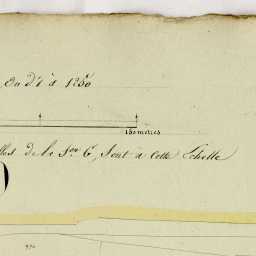 ou d'1 à 1250
150 metres
lles de la son C, sont à cette Echelle